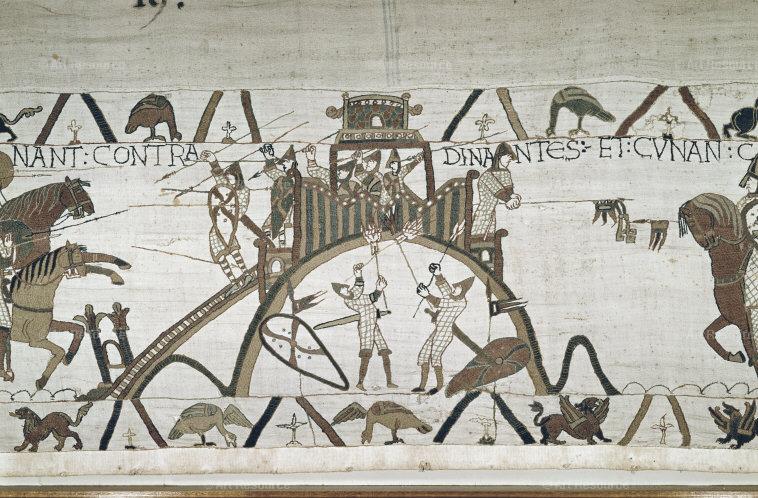 19.
NANT : CONTRA DINANTES : ET : CVNAN : C